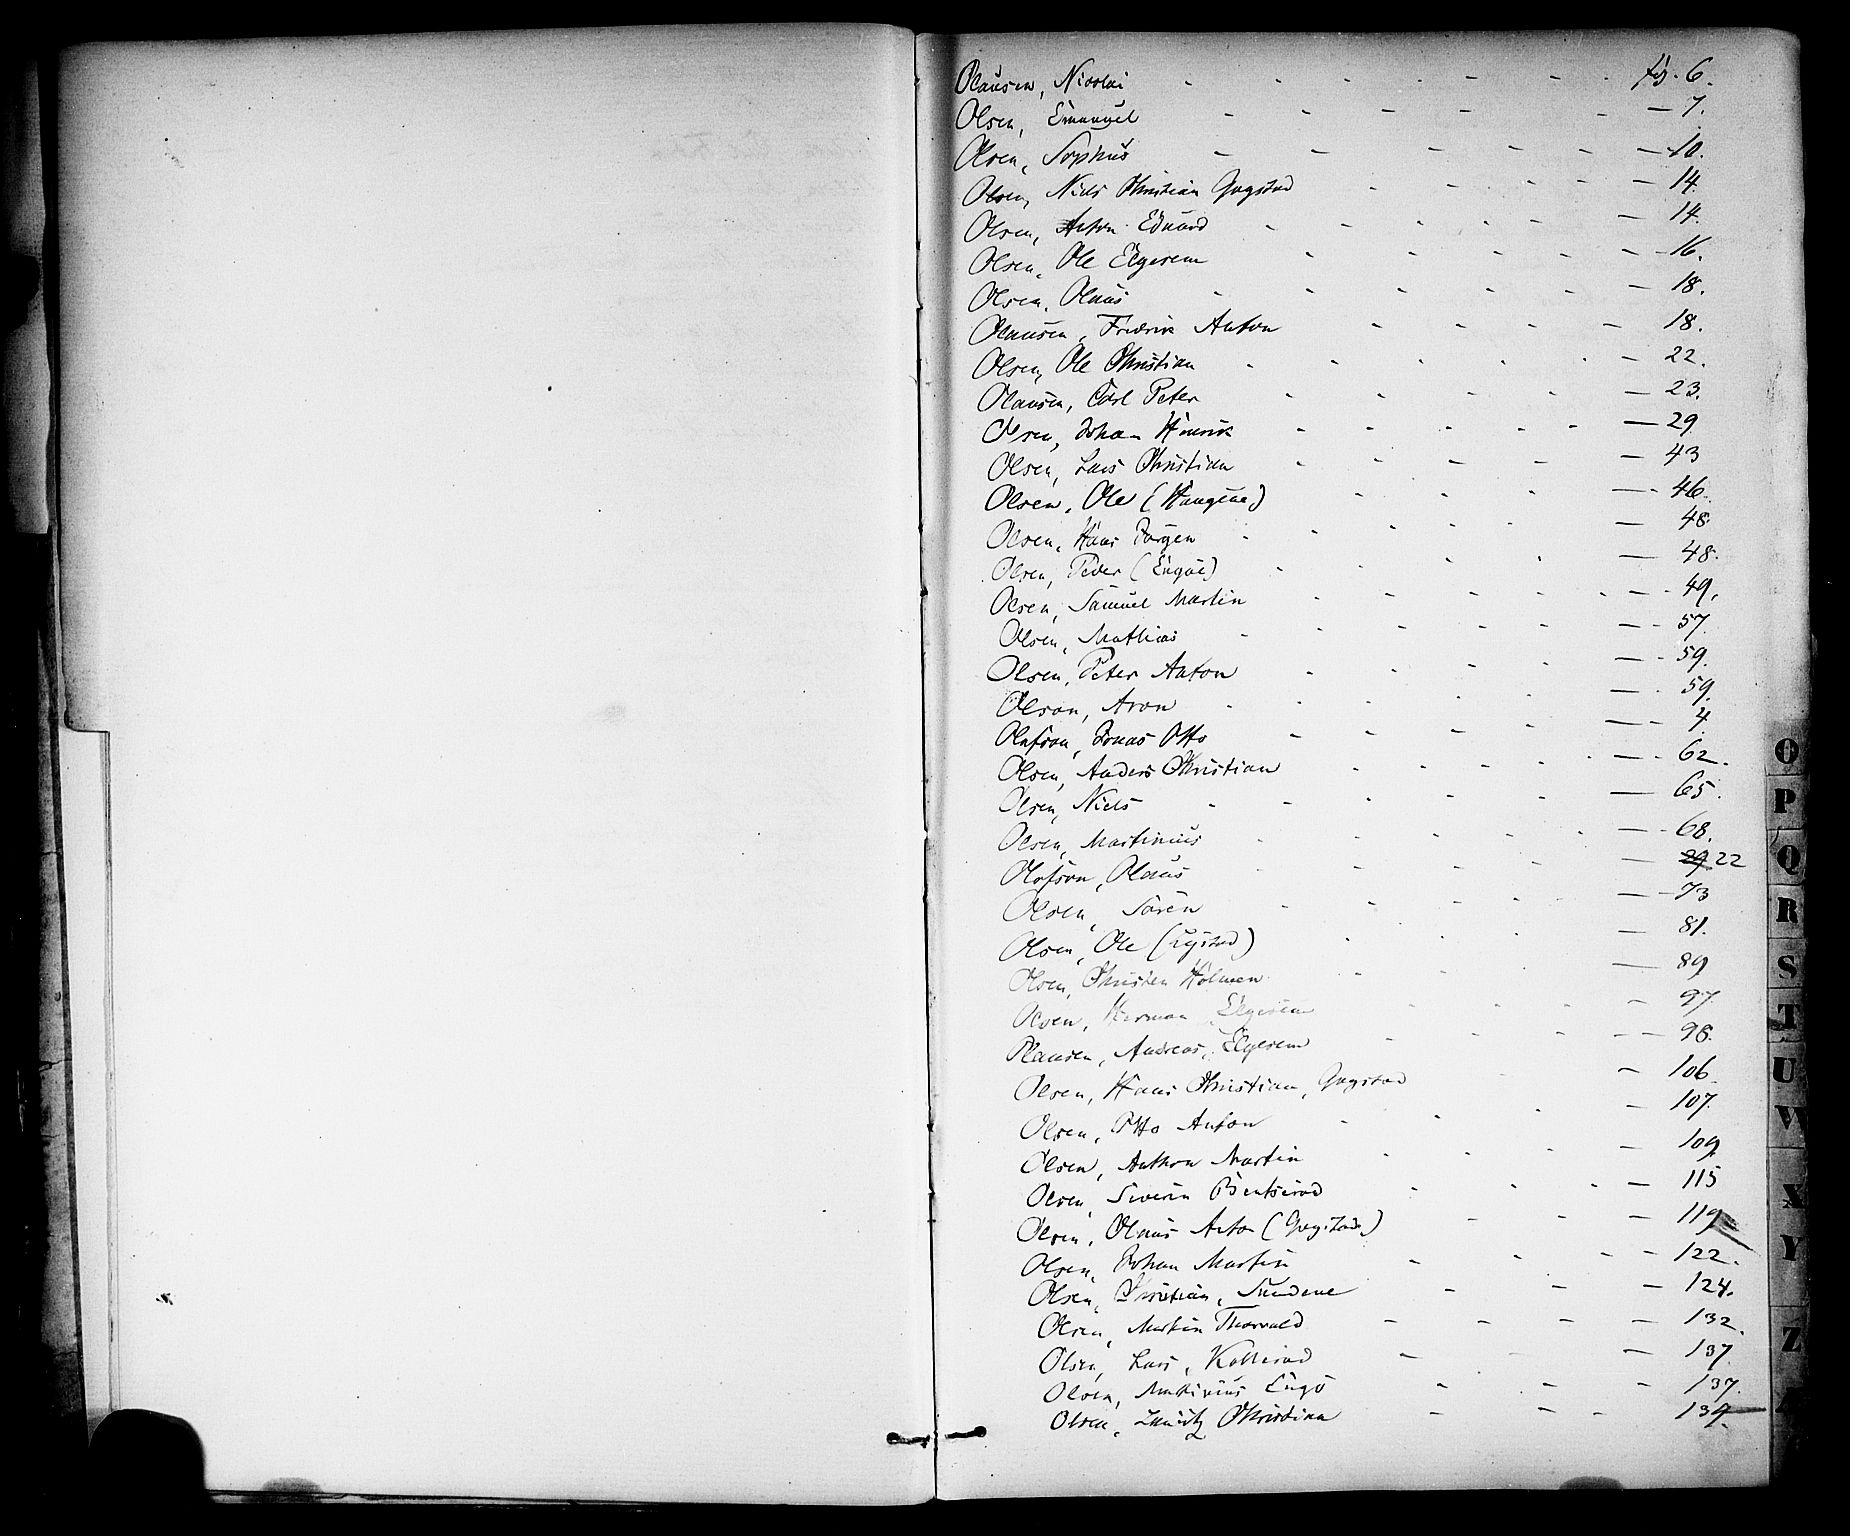 Olausen, Nicolai - - - - - - - fol. 6.
Olsen, Emanuel - - - - - - — 7.
Olsen, Sophus - - - - - — 10.
Olsen, Niels Christian Gogstad - - - - — 14.
Olsen, Anton Eduard - - - - - — 14.
Olsen, Ole Elgesem - - - - - — 16.
Olsen, Olaus - - - - - — 18.
Olausen, Fredrik Anton - - - — 18.
Olsen, Ole Christian - - - - - — 22.
Olausen, Carl Peter - - - - — 23.
Olsen, Johan Hinrik - - - - - — 29
Olsen, Lars Christian - - - - — 43
Olsen, Ole (Haugene) - - - — 46.
Olsen, Hans Jørgen - - - - - — 48.
Olsen, Peder (Engøe) - - - - — 48.
Olsen, Samuel Martin - - - - - — 49.
Olsen, Mathias - - - - - — 57.
Olsen, Peter Anton - - - - — 59.
Olson, Aron - - - - - — 59.
Olafson, Jonas Otto - - - - — 4
Olsen, Anders Christian - - - - — 62.
Olsen, Niels - - - - - — 65.
Olsen, Martinius - - - - - — 68.
Olofson, Olaus - - - - — 29 22
Olsen, Søren - - - - — 73
Olsen, Ole (Lystad) - - - — 81.
Olsen, Christen Holmen - - — 89
Olsen, Herman, Elgesem - - - — 97
Olausen, Andreas, Elgesem - - - — 98.
Olsen, Hans Christian, Gogstad - - — 106.
Olsen, Otto Anton - - - — 107.
Olsen, Anthon Martin - - - — 109
Olsen, Severin Bentserød - - - — 115
Olsen, Olaus Anton (Gogstad) - - — 119
Olsen, Johan Martin - - - — 122.
Olsen, Christian, Sundene - - — 124.
Olsen, Martin Thorvald - - - — 132.
Olsen, Lars, Kollerød - — 137.
Olsen, Martinius Engø - - — 137.
Olsen, Christian - - - 139.
O
P
Q
R
S
T
U
W
X
Y
Z